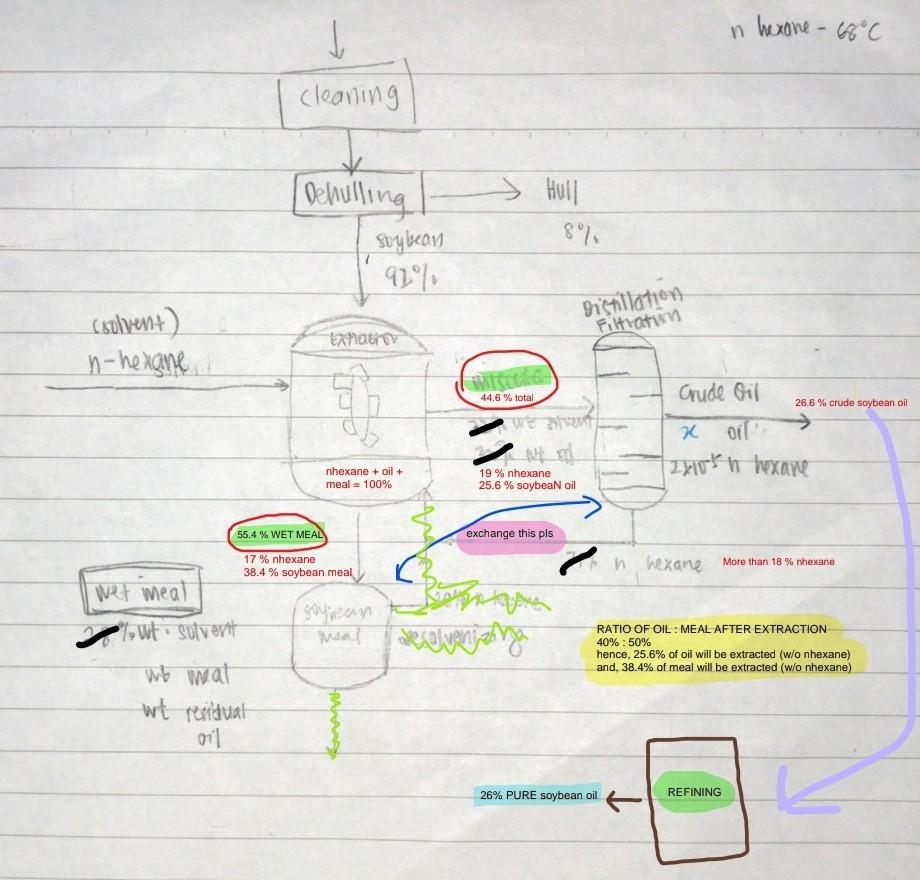 n hexane - 68°C
cleaning
Dehulling
Hull
8%
soybean
92%
(solvent)
n-hexane
Extractor
Distillation
Filtration
miscella
44.6 % total
wt solvent
wt oil
19 % nhexane
25.6 % soybeaN oil
Crude Oil
x oil
2x10⁻⁵ n hexane
26.6 % crude soybean oil
nhexane + oil +
meal = 100%
55.4 % WET MEAL
17 % nhexane
38.4 % soybean meal
exchange this pls
n hexane
More than 18 % nhexane
wet meal
% wt. solvent
wt meal
wt residual
oil
soybean
meal
desolventizing
RATIO OF OIL : MEAL AFTER EXTRACTION
40% : 50%
hence, 25.6% of oil will be extracted (w/o nhexane)
and, 38.4% of meal will be extracted (w/o nhexane)
REFINING
26% PURE soybean oil